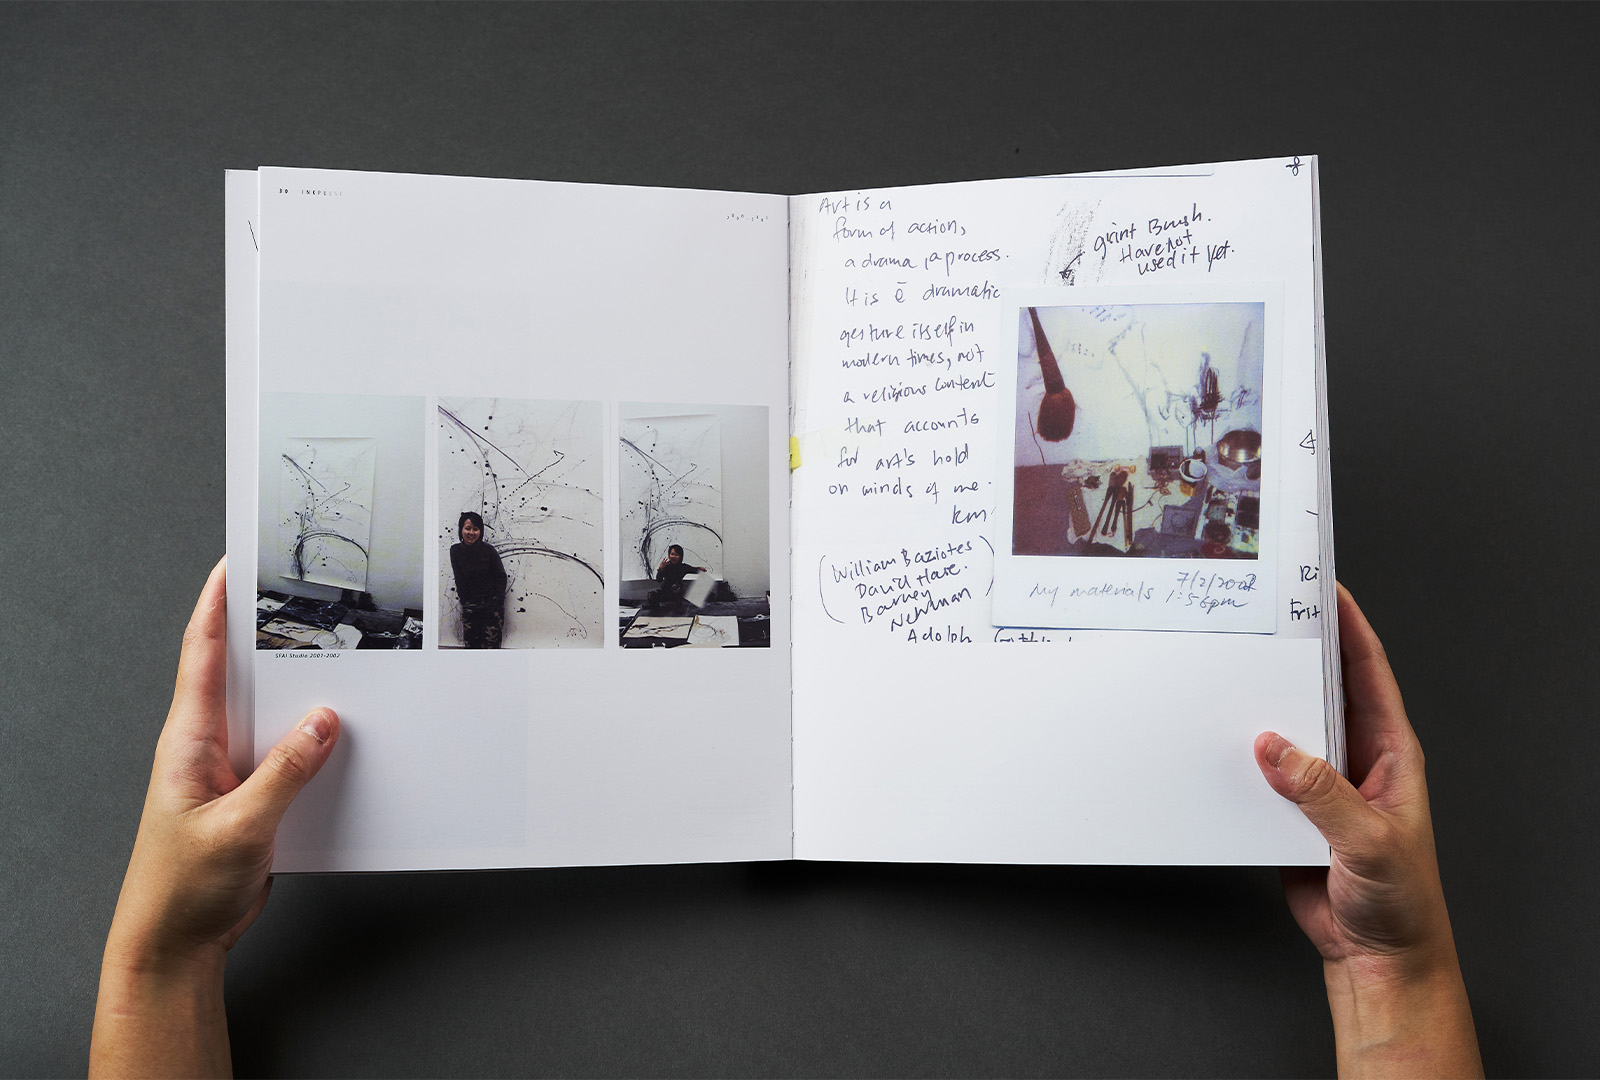 30 INKPULSE
2000-2002
SFAI Studio 2001-2002
Art is a
form of action,
a drama, a process.
It is ē dramatic
gesture itself in
modern times, not
a religious content
that accounts
for art's hold
on minds of me.
km
(William Baziotes
David Hare.
Barney
Newman)
Adolph
giint Brush.
Have not
used it yet.
My materials 7/2/2002
1:56pm
Ri
Frit